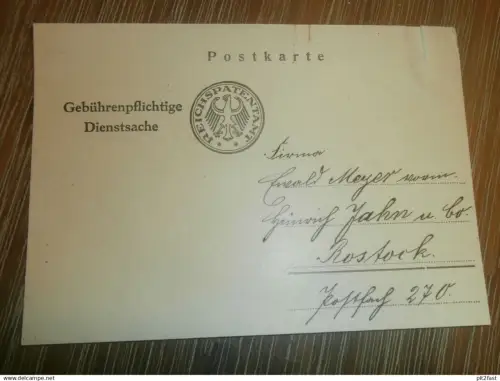 Postkarte
Gebührenpflichtige
Dienstsache
REICHSPATENTAMT
Firma
Ewald Meyer vorm.
Heinrich Jahn u. Co.
Rostock.
Postfach 270.
www.delcampe.net
pk2fast